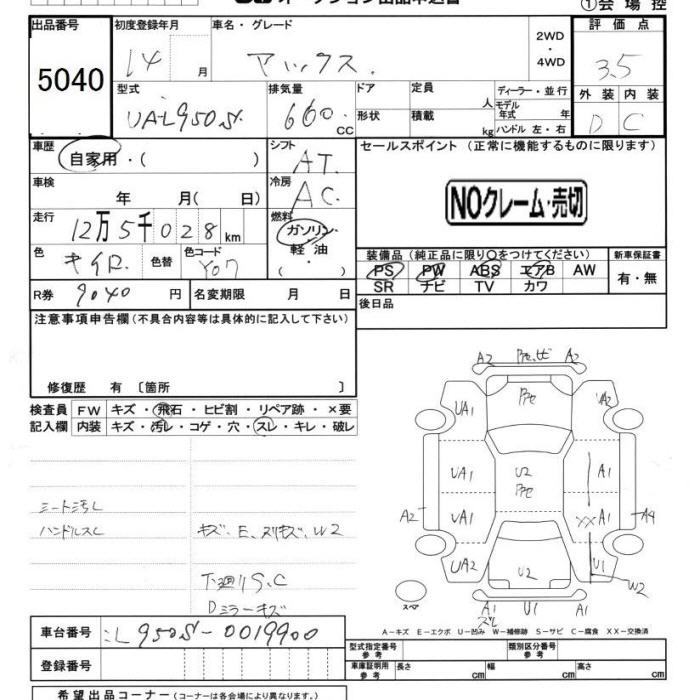 ①会場控
出品番号
5040
初度登録年月
14
月
車名・グレード
マックス.
2WD
・
4WD
評価点
3.5
外装
内装
D
C
型式
UA-L950S
排気量
660.
CC
ドア
形状
定員
人
積載
kg
ディーラー・並行
モデル
年式
年
ハンドル 左・右
車歴
自家用・(
)
シフト
AT.
車検
年
月(
日)
冷房
AC.
走行
12万5千028km
燃料
ガソリン・
軽油
・( )
色
キイロ.
色替
色コード
Y07
R券
9040
円
名変期限
月
日
セールスポイント (正常に機能するものに限ります)
NOクレーム・売切
装備品 (純正品に限り○をつけてください)
新車保証書
PS
PW
ABS
エアB
AW
SR
ナビ
TV
カワ
有・無
後日品
注意事項申告欄(不具合内容等は具体的に記入して下さい)
修復歴 有 〔箇所
〕
検査員
記入欄
FW
キズ・飛石・ヒビ割・リペア跡・×要
内装
キズ・汚レ・コゲ・穴・スレ・キレ・破レ
シート汚レ
ハンドルスレ
キズ、E、スリキズ、W2
下廻りS、C
Dミラーキズ
A2
A2
UA1
UA1
U2
A1
A2
UA1
XX
A1
A4
UA2
U2
U1
W2
スペア
A1
U1
A1
スレ
A-キズ E-エクボ U-凹み W-補修跡 S-サビ C-腐食 XX-交換済
車台番号
L950S-0019900
登録番号
型式指定番号
参考
類別区分番号
参考
車庫証明用
参考
長さ
cm
幅
cm
高さ
cm
希望出品コーナー (コーナーは各会場により異なります。)